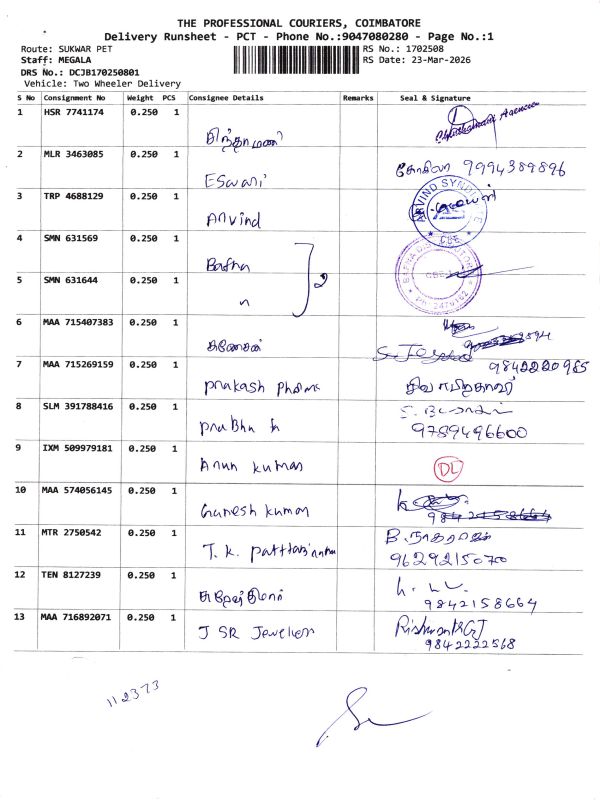 THE PROFESSIONAL COURIERS, COIMBATORE
Delivery Runsheet - PCT - Phone No.:9047080280 - Page No.:1
Route: SUKWAR PET RS No.: 1702508
Staff: MEGALA RS Date: 23-Mar-2026
DRS No.: DCJB170250801
Vehicle: Two Wheeler Delivery
S No Consignment No Weight PCS Consignee Details Remarks Seal & Signature
1 HSR 7741174 0.250 1
சிந்தாமணி
2 MLR 3463085 0.250 1 கோகிலா 9994389896
Eswari
3 TRP 4688129 0.250 1 ARVIND SYNDICATE CBE
Arvind
4 SMN 631569 0.250 1
Bafna
5 SMN 631644 0.250 1 2
"
6 MAA 715407383 0.250 1
கணேசன்
7 MAA 715269159 0.250 1 9842220985
prakash
8 SLM 391788416 0.250 1
prabhu 9789496600
9 IXM 509979181 0.250 1
Arun kumar DL
10 MAA 574056145 0.250 1
Ganesh kumar
11 MTR 2750542 0.250 1 B. நாகராஜ்
T. K. 9629215070
12 TEN 8127239 0.250 1
9842158664
13 MAA 716892071 0.250 1
J SR Jewellers 9842222568
112373